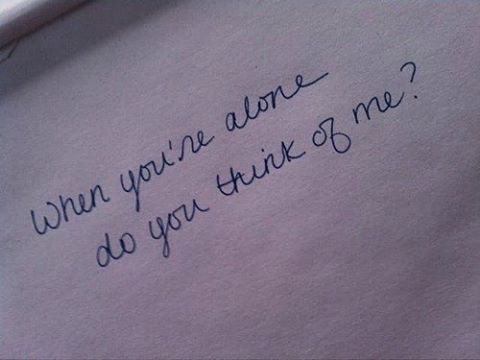 When you're alone
do you think of me?